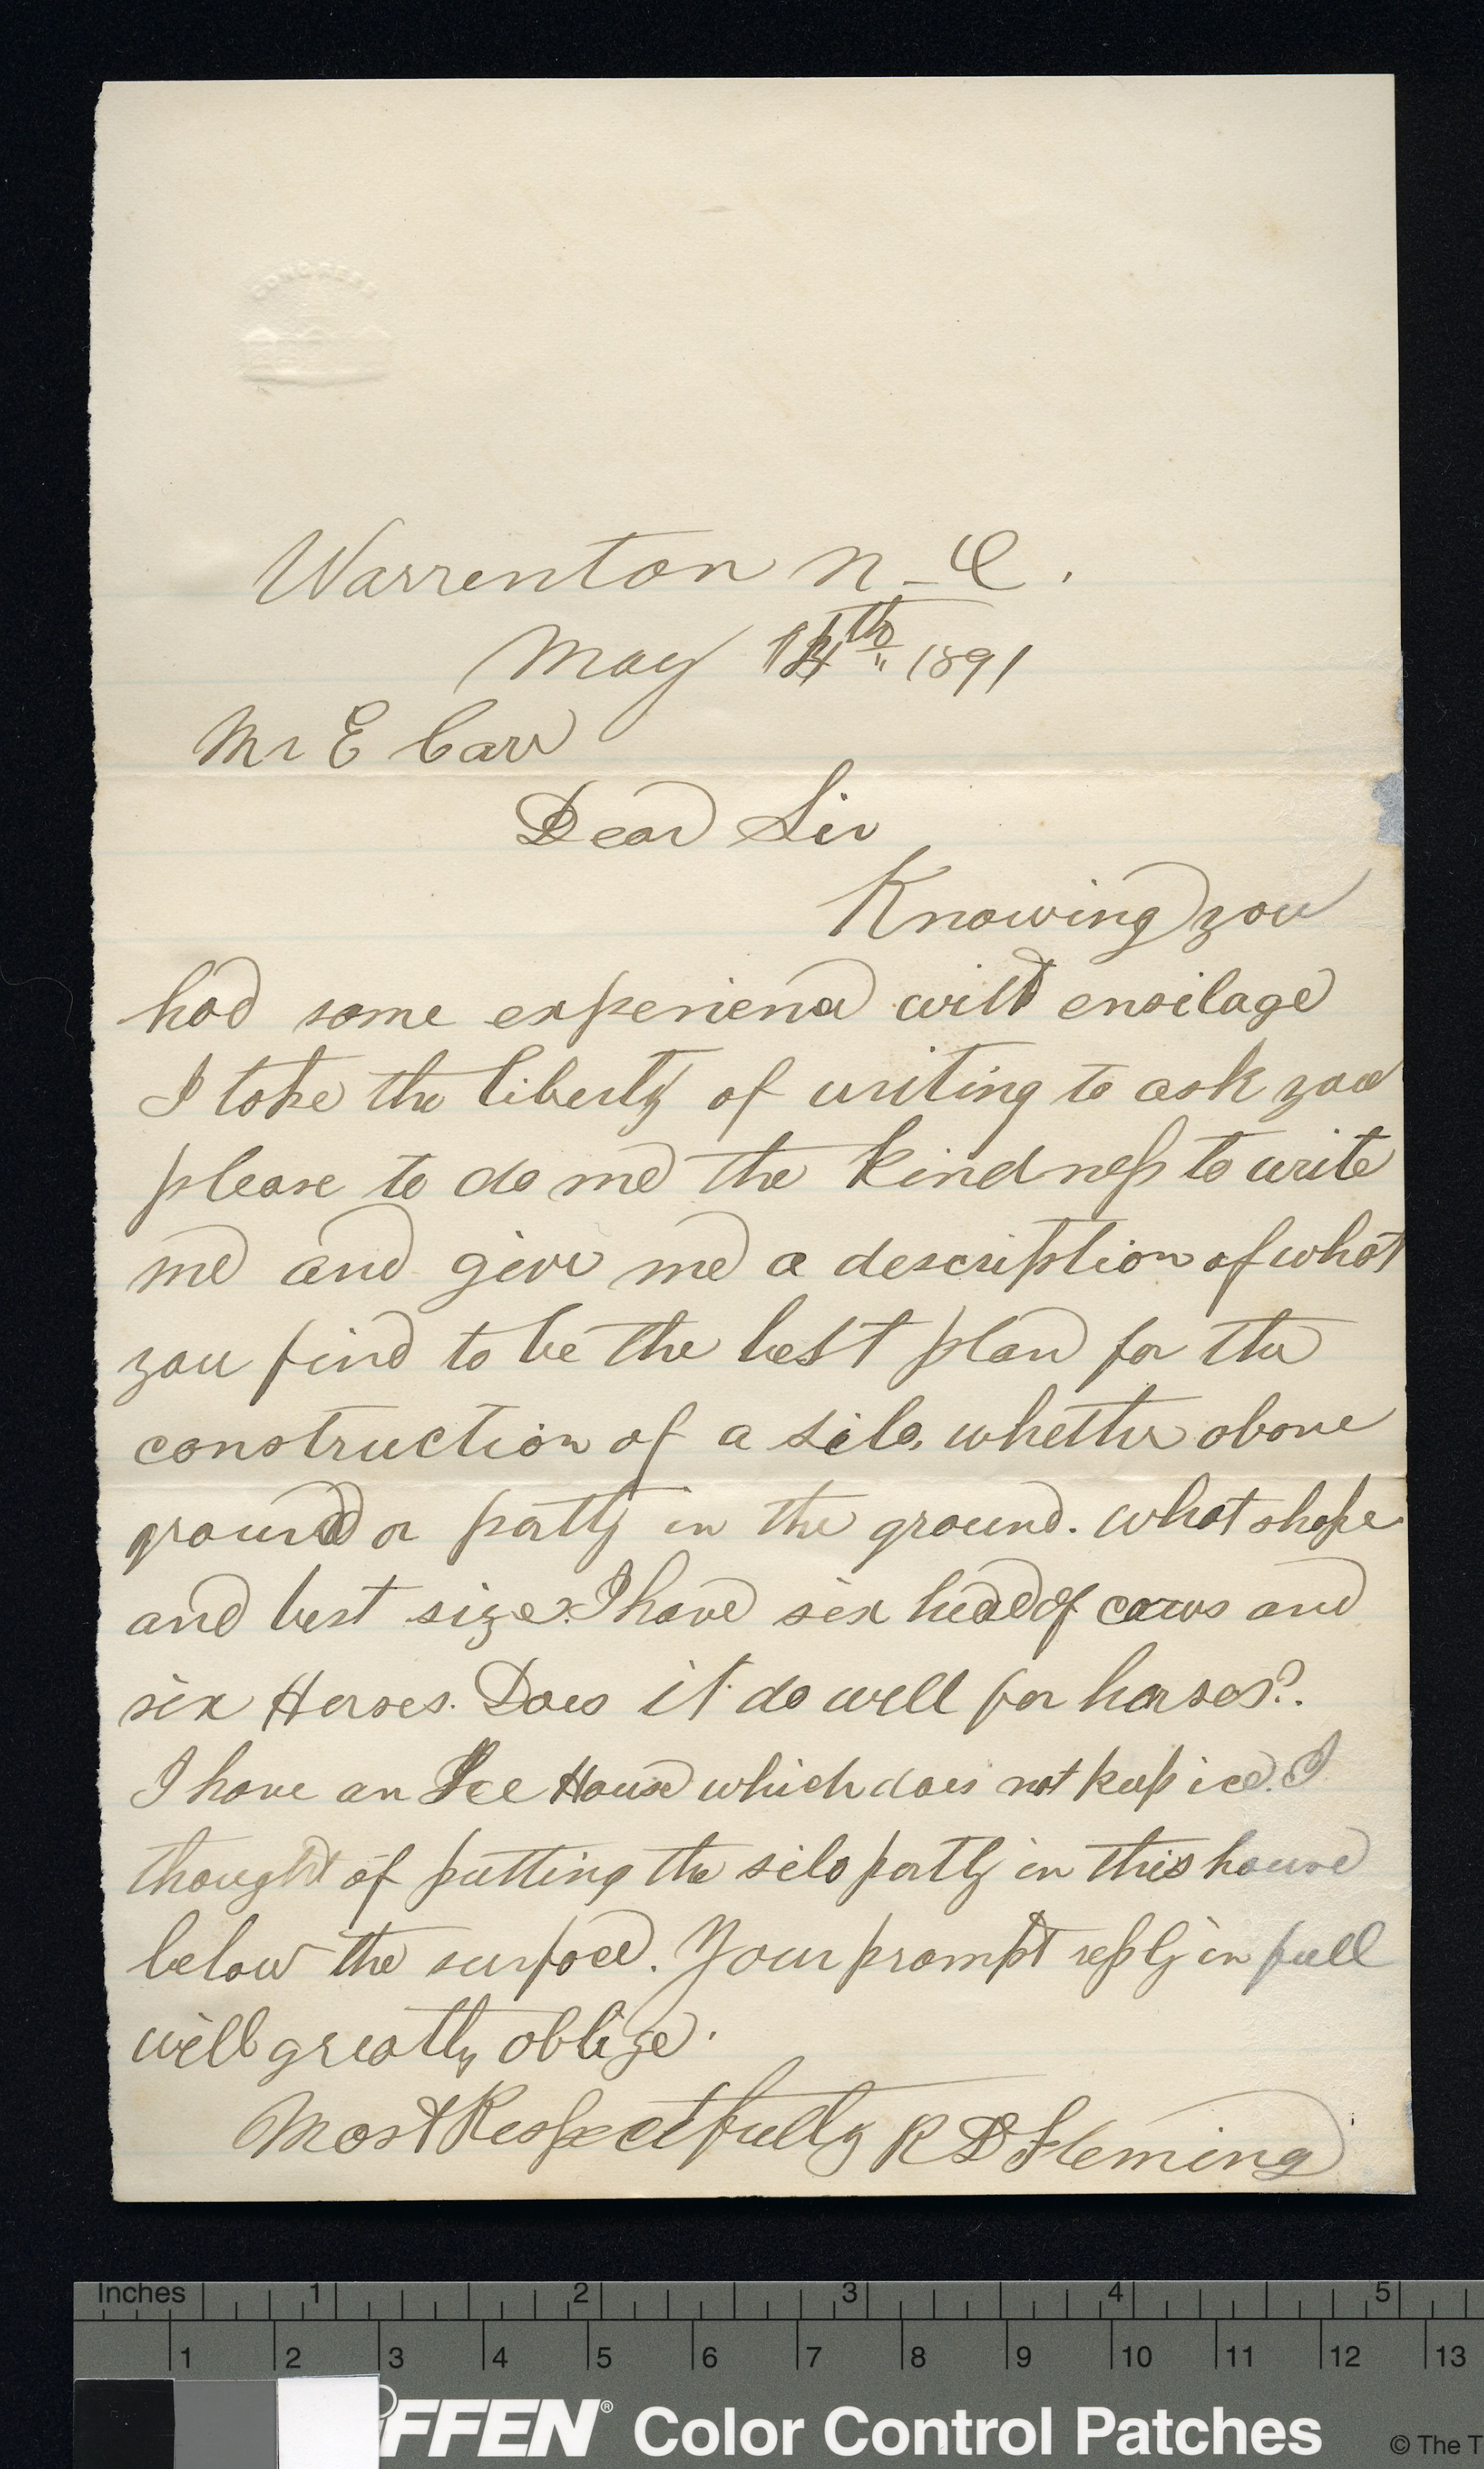 CONGRESS
Warrenton N-C.
May 14th 1891
Mr E Carr
Dear Sir
Knowing you
had some experience with ensilage
I take the liberty of writing to ask you
please to do me the kindness to write
me and give me a description of what
you find to be the best plan for the
construction of a silo, whether above
ground or partly in the ground. What shape
and best size. I have six head of cows and
six Horses. Does it do well for horses?.
I have an Ice House which does not keep ice. I
thought of putting the silo partly in this house
below the surface. Your prompt reply in full
will greatly oblige.
Most Respectfully R D Fleming
Inches 1 2 3 4 5
1 2 3 4 5 6 7 8 9 10 11 12 13
FFEN® Color Control Patches © The T